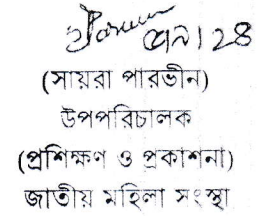 (সায়রা পারভীন)
উপপরিচালক
(প্রশিক্ষণ ও প্রকাশনা)
জাতীয় মহিলা সংস্থা